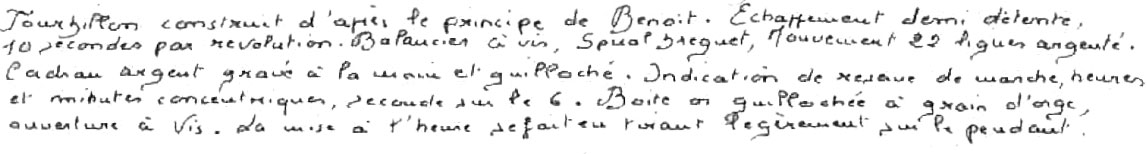 Tourbillon construit d'après le principe de Benoit. Echappement demi détente,
10 secondes par revolution. Balancier à vis, Spiral breguet, Mouvement 22 lignes argenté.
Cadran argent gravé à la main et guilloché. Indication de reserve de marche, heures
et minutes concentriques, seconde sur le 6. Boite or guillochée à grain d'orge,
ouverture à vis. La mise à l'heure se fait en tirant legèrement sur le pendant.